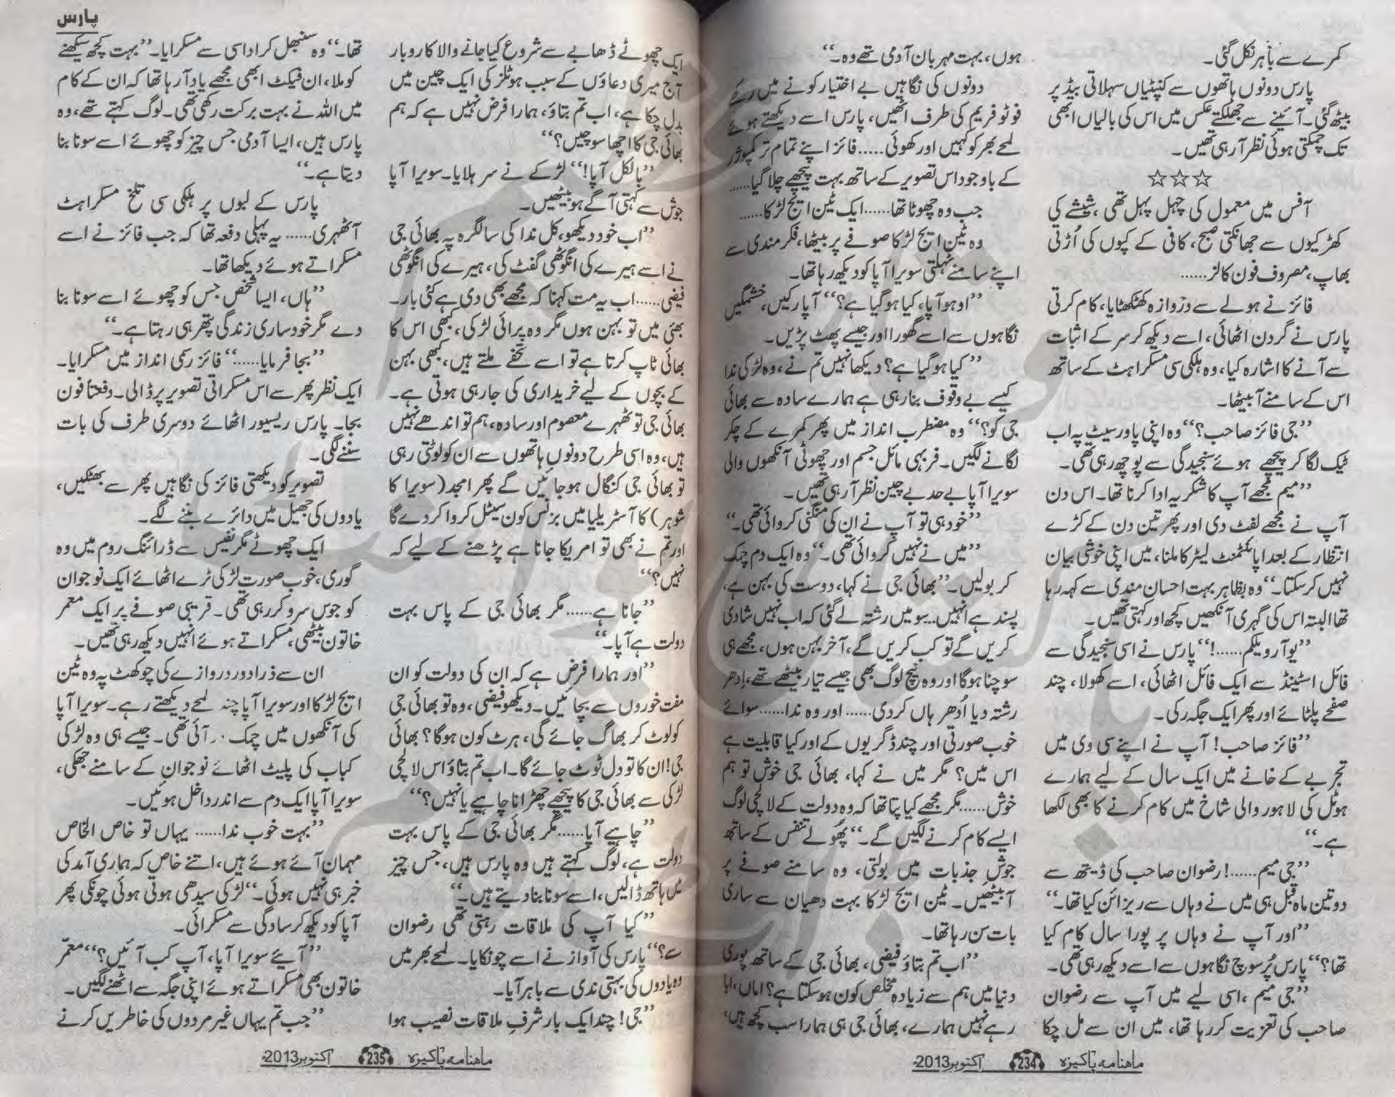 کمرے سے باہر نکل گئی۔
پارس دونوں ہاتھوں سے کنپٹیاں سہلاتی بیڈ پر
بیٹھ گئی۔ آئینے سے جھلکتے عکس میں اس کی بالیاں ابھی
تک چمکتی ہوئی نظر آ رہی تھیں۔
☆☆☆
آفس میں معمول کی چہل پہل تھی، شیشے کی
کھڑکیوں سے جھانکتی صبح، کافی کے کپوں کی اُڑتی
بھاپ، مصروف فون کالز......
فائز نے ہولے سے دروازہ کھٹکھٹایا، کام کرتی
پارس نے گردن اٹھائی، اسے دیکھ کر سر کے اثبات
سے آنے کا اشارہ کیا، وہ ہلکی سی مسکراہٹ کے ساتھ
اس کے سامنے آ بیٹھا۔
”جی فائز صاحب؟“ وہ اپنی پاور سیٹ پہ اب
ٹیک لگا کر پیچھے ہوئے سنجیدگی سے پوچھ رہی تھی۔
”میم مجھے آپ کا شکریہ ادا کرنا تھا۔ اس دن
آپ نے مجھے لفٹ دی اور پھر تین دن کے کڑے
انتظار کے بعد اپائنٹمنٹ لیٹر کا ملنا، میں اپنی خوشی بیان
نہیں کر سکتا۔“ وہ بظاہر بہت احسان مندی سے کہہ رہا
تھا البتہ اس کی گہری آنکھیں کچھ اور کہتی تھیں۔
”یو آر ویلکم......!“ پارس نے اسی سنجیدگی سے
فائل اسٹینڈ سے ایک فائل اٹھائی، اسے کھولا، چند
صفحے پلٹائے اور پھر ایک جگہ رکی۔
”فائز صاحب! آپ نے اپنے سی وی میں
تجربے کے خانے میں ایک سال کے لیے ہمارے
ہوٹل کی لاہور والی شاخ میں کام کرنے کا بھی لکھا
ہے۔“
”جی میم......! رضوان صاحب کی ڈیتھ سے
دو تین ماہ قبل ہی میں نے وہاں سے ریزائن کیا تھا۔“
”اور آپ نے وہاں پر پورا سال کام کیا
تھا؟“ پارس پُر سوچ نگاہوں سے اسے دیکھ رہی تھی۔
”جی میم، اسی لیے میں آپ سے رضوان
صاحب کی تعزیت کر رہا تھا، میں ان سے مل چکا
ہوں، بہت مہربان آدمی تھے وہ۔“
دونوں کی نگاہیں بے اختیار کونے میں رکھے
فوٹو فریم کی طرف اٹھیں، پارس اسے دیکھتے ہوئے
لمحے بھر کو کہیں اور کھوئی..... فائز اپنے تمام تر کمپوژر
کے باوجود اس تصویر کے ساتھ بہت پیچھے چلا گیا......
جب وہ چھوٹا تھا...... ایک ٹین ایج لڑکا......
وہ ٹین ایج لڑکا صوفے پر بیٹھا، فکر مندی سے
اپنے سامنے ٹہلتی سویرا آپا کو دیکھ رہا تھا۔
”اوہو آپا، کیا ہو گیا ہے؟“ آپا رکیں، خشمگیں
نگاہوں سے اسے گھورا اور جیسے پھٹ پڑیں۔
”کیا ہو گیا ہے؟ دیکھا نہیں تم نے، وہ لڑکی ندا
کیسے بے وقوف بنا رہی ہے ہمارے سادہ سے بھائی
جی کو؟“ وہ مضطرب انداز میں پھر کمرے کے چکر
لگانے لگیں۔ فربہی مائل جسم اور چھوٹی آنکھوں والی
سویرا آپا بے حد بے چین نظر آ رہی تھیں۔
”خود ہی تو آپ نے ان کی منگنی کروائی تھی۔“
”میں نے نہیں کروائی تھی۔“ وہ ایک دم چمک
کر بولیں۔ ”بھائی جی نے کہا، دوست کی بہن ہے،
پسند ہے انہیں۔ سو میں رشتہ لے گئی کہ اب نہیں شادی
کریں گے تو کب کریں گے، آخر بہن ہوں، مجھے ہی
سوچنا ہوگا اور وہ نیچ لوگ بھی جیسے تیار بیٹھے تھے، ادھر
رشتہ دیا ادھر ہاں کر دی...... اور وہ ندا...... سوائے
خوب صورتی اور چند ڈگریوں کے اور کیا قابلیت ہے
اس میں؟ مگر میں نے کہا، بھائی جی خوش تو ہم
خوش...... مگر مجھے کیا پتا تھا کہ وہ دولت کے لالچی لوگ
ایسے کام کرنے لگیں گے۔“ پھولے تنفس کے ساتھ
جوش جذبات میں بولتی، وہ سامنے صوفے پر
آ بیٹھیں۔ ٹین ایج لڑکا بہت دھیان سے ساری
بات سن رہا تھا۔
”اب تم بتاؤ فیضی، بھائی جی کے ساتھ پوری
دنیا میں ہم سے زیادہ مخلص کون ہو سکتا ہے؟ اماں، ابا
رہے نہیں ہمارے، بھائی جی ہی ہمارا سب کچھ ہیں،
ماہنامہ پاکیزہ 234 اکتوبر 2013ء
پارس
ایک چھوٹے ڈھابے سے شروع کیا جانے والا کاروبار
آج میری دعاؤں کے سبب ہوٹلز کی ایک چین میں
بدل چکا ہے، اب تم بتاؤ، ہمارا فرض نہیں ہے کہ ہم
بھائی جی کا اچھا سوچیں؟“
”بالکل آپا!“ لڑکے نے سر ہلایا۔ سویرا آپا
جوش سے کہتی آگے ہو بیٹھیں۔
”اب خود دیکھو، کل ندا کی سالگرہ پہ بھائی جی
نے اسے ہیرے کی انگوٹھی گفٹ کی، ہیرے کی انگوٹھی
فیضی...... اب یہ مت کہنا کہ مجھے بھی دی ہے کئی بار۔
بھئی میں تو بہن ہوں مگر وہ پرائی لڑکی، کبھی اس کا
بھائی ٹاپ کرتا ہے تو اسے تحفے ملتے ہیں، کبھی بہن
کے بچوں کے لیے خریداری کی جا رہی ہوتی ہے۔
بھائی جی تو ٹھہرے معصوم اور سادہ، ہم تو اندھے نہیں
ہیں، وہ اسی طرح دونوں ہاتھوں سے ان کو لوٹتی رہی
تو بھائی جی کنگال ہو جائیں گے پھر امجد (سویرا کا
شوہر) کا آسٹریلیا میں بزنس کون سیٹل کروا کر دے گا
اور تم نے بھی تو امریکا جانا ہے پڑھنے کے لیے کہ
نہیں؟“
”جانا ہے...... مگر بھائی جی کے پاس بہت
دولت ہے آپا۔“
”اور ہمارا فرض ہے کہ ان کی دولت کو ان
مفت خوروں سے بچائیں۔ دیکھو فیضی، وہ تو بھائی جی
کو لوٹ کر بھاگ جائے گی، ہرٹ کون ہوگا؟ بھائی
جی! ان کا تو دل ٹوٹ جائے گا۔ اب تم بتاؤ اس لالچی
لڑکی سے بھائی جی کا پیچھے چھڑانا چاہیے یا نہیں؟“
”چاہیے آپا...... مگر بھائی جی کے پاس بہت
دولت ہے، لوگ کہتے ہیں وہ پارس ہیں، جس چیز
میں ہاتھ ڈالیں، اسے سونا بنا دیتے ہیں۔“
”کیا آپ کی ملاقات رہتی تھی رضوان
سے؟“ پارس کی آواز نے اسے چونکایا۔ لمحے بھر میں
وہ یادوں کی بہتی ندی سے باہر آیا۔
”جی! چند ایک بار شرفِ ملاقات نصیب ہوا
تھا۔“ وہ سنبھل کر اداسی سے مسکرایا۔ ”بہت کچھ سیکھنے
کو ملا، ان فیکٹ ابھی مجھے یاد آ رہا تھا کہ ان کے کام
میں اللہ نے بہت برکت رکھی تھی۔ لوگ کہتے تھے، وہ
پارس ہیں، ایسا آدمی جس چیز کو چھوئے اسے سونا بنا
دیتا ہے۔“
پارس کے لبوں پر ہلکی سی تلخ مسکراہٹ
آ ٹھہری...... یہ پہلی دفعہ تھا کہ جب فائز نے اسے
مسکراتے ہوئے دیکھا تھا۔
”ہاں، ایسا شخص جس کو چھوئے اسے سونا بنا
دے مگر خود ساری زندگی پتھر ہی رہتا ہے۔“
”بجا فرمایا......“ فائز رسمی انداز میں مسکرایا۔
ایک نظر پھر سے اس مسکراتی تصویر پر ڈالی۔ دفعتاً فون
بجا۔ پارس ریسیور اٹھائے دوسری طرف کی بات
سننے لگی۔
تصویر کو دیکھتی فائز کی نگاہیں پھر سے بھٹکیں،
یادوں کی جھیل میں دائرے بننے لگے۔
ایک چھوٹے مگر نفیس سے ڈرائنگ روم میں وہ
گوری، خوب صورت لڑکی ٹرے اٹھائے ایک نوجوان
کو جوس سرو کر رہی تھی۔ قریبی صوفے پر ایک معمر
خاتون بیٹھی، مسکراتے ہوئے انہیں دیکھ رہی تھیں۔
ان سے ذرا دور دروازے کی چوکھٹ پہ وہ ٹین
ایج لڑکا اور سویرا آپا چند لمحے دیکھتے رہے۔ سویرا آپا
کی آنکھوں میں چمک در آئی تھی۔ جیسے ہی وہ لڑکی
کباب کی پلیٹ اٹھائے نوجوان کے سامنے جھکی،
سویرا آپا ایک دم سے اندر داخل ہوئیں۔
”بہت خوب ندا...... یہاں تو خاص الخاص
مہمان آئے ہوئے ہیں، اتنے خاص کہ ہماری آمد کی
خبر ہی نہیں ہوئی۔“ لڑکی سیدھی ہوتی ہوئی چونکی پھر
آپا کو دیکھ کر سادگی سے مسکرائی۔
”آیئے سویرا آپا، آپ کب آئیں؟“ معمر
خاتون بھی مسکراتے ہوئے اپنی جگہ سے اٹھنے لگیں۔
”جب تم یہاں غیر مردوں کی خاطریں کرنے
ماہنامہ پاکیزہ 235 اکتوبر 2013ء